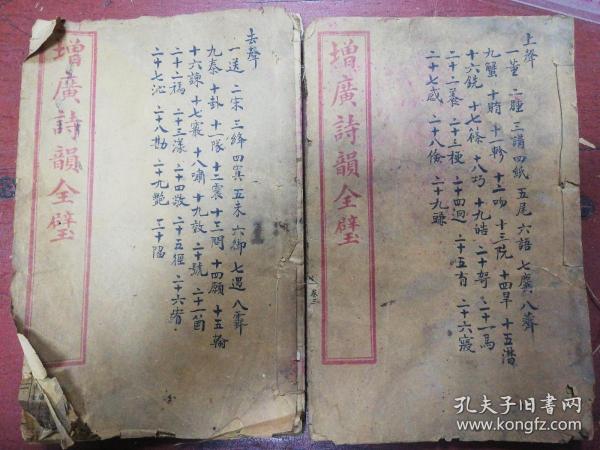 上聲
一董 二腫 三講 四紙 五尾 六語 七麌 八薺
九蟹 十賄 十軫 十二吻 十三阮 十四旱 十五潸
十六銑 十七篠 十八巧 十九皓 二十哿 二十一馬
二十二養 二十三梗 二十四迥 二十五有 二十六寢
二十七感 二十八儉 二十九豏
增廣詩韻全璧
卷三
去聲
一送 二宋 三絳 四寘 五未 六御 七遇 八霽
九泰 十卦 十一隊 十二震 十三問 十四願 十五翰
十六諫 十七霰 十八嘯 十九效 二十號 二十一箇
二十二禡 二十三漾 二十四敬 二十五徑 二十六宥
二十七沁 二十八勘 二十九艷 三十陷
增廣詩韻全璧
孔夫子旧书网
www.kongfz.com